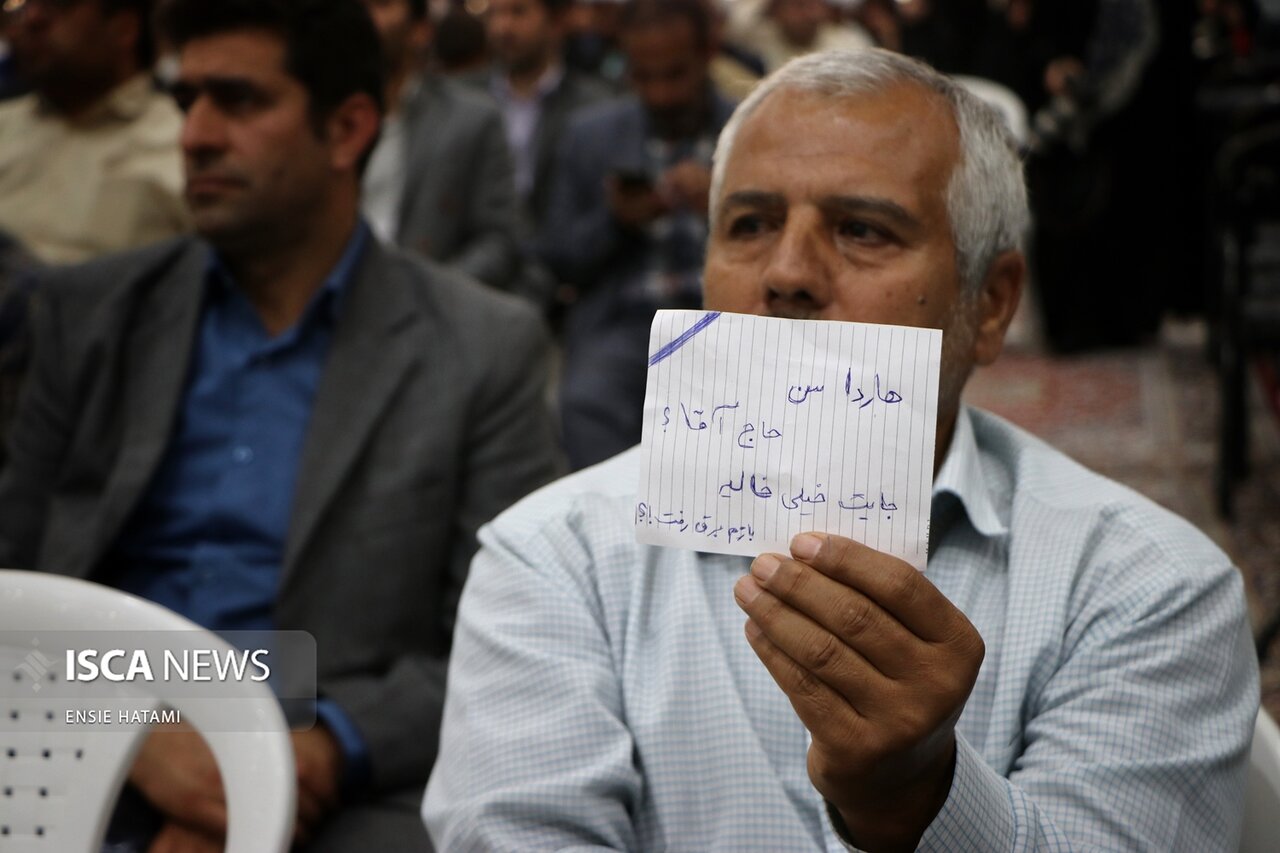 هاردا سن
حاج آقا ؟
جایت خیلی خالیه
بازم برق رفت !؟
ISCA NEWS
ENSIE HATAMI